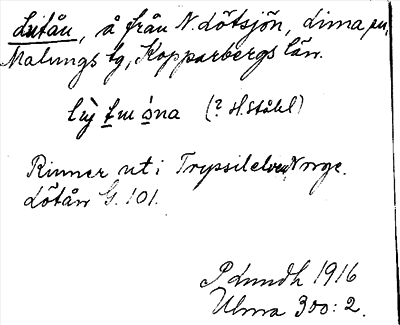 Lutån, å från N. Lötsjön, Lima sn,
Malungs tg, Kopparbergs län.
(? H. Ståhl)
Rinner ut i Trysilelven, Norge.
Lötån G. 101.
P Lundh 1916
Ulma 300:2.